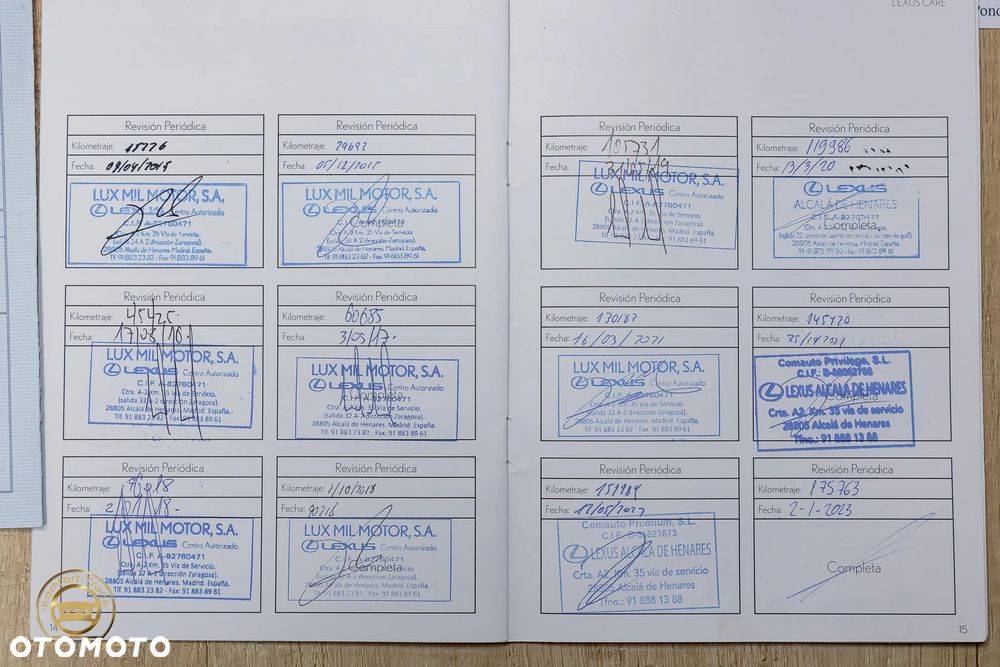 LEXUS CARE
Revisión Periódica
Kilometraje: 15776
Fecha: 09/04/2015
LUX MIL MOTOR, S.A.
LEXUS Centro Autorizado
C.I.F. A-82760471
Km. 35 Vía de Servicio.
28805 Alcalá de Henares. Madrid. España.
Tlf. 91 883 23 82 - Fax: 91 883 89 61
Revisión Periódica
Kilometraje: 29692
Fecha: 05/12/2015
LUX MIL MOTOR, S.A.
LEXUS Centro Autorizado
Completa
C.I.F. A-82760471
Ctra. A-2 Km. 35 Vía de Servicio.
28805 Alcalá de Henares. Madrid. España.
Tlf. 91 883 23 82 - Fax: 91 883 89 61
Revisión Periódica
Kilometraje: 45425
Fecha: 17/08/16
LUX MIL MOTOR, S.A.
LEXUS Centro Autorizado
C.I.F. A-82760471
Ctra. A-2 Km. 35 Vía de Servicio.
(salida 32 A-2 dirección Zaragoza).
28805 Alcalá de Henares. Madrid. España.
Tlf. 91 883 23 82 - Fax: 91 883 89 61
Revisión Periódica
Kilometraje: 60685
Fecha: 3/05/17
LUX MIL MOTOR, S.A.
LEXUS Centro Autorizado
Completa
C.I.F. A-82760471
Ctra. A-2 Km. 35 Vía de Servicio.
(salida 32 A-2 dirección Zaragoza).
28805 Alcalá de Henares. Madrid. España.
Tlf. 91 883 23 82 - Fax: 91 883 89 61
Revisión Periódica
Kilometraje:
Fecha: 2/01/18
LUX MIL MOTOR, S.A.
LEXUS Centro Autorizado
C.I.F. A-82760471
Ctra. A-2 Km. 35 Vía de Servicio.
(salida 32 A-2 dirección Zaragoza).
28805 Alcalá de Henares. Madrid. España.
Tlf. 91 883 23 82 - Fax: 91 883 89 61
Revisión Periódica
Kilometraje: 2/10/2018
Fecha: 90216
LUX MIL MOTOR, S.A.
LEXUS Centro Autorizado
C.I.F. A-82760471
Completa
28805 Alcalá de Henares. Madrid. España.
Tlf. 91 883 23 82 - Fax: 91 883 89 61
14
Revisión Periódica
Kilometraje: 105731
Fecha: 31/05/19
LUX MIL MOTOR, S.A.
LEXUS Centro Autorizado
C.I.F. A-82760471
Ctra. A-2 Km. 35 Vía de Servicio.
(salida 32 A-2 dirección Zaragoza).
28805 Alcalá de Henares. Madrid. España.
Tlf. 91 883 23 82 - Fax: 91 883 89 61
Revisión Periódica
Kilometraje: 119986
Fecha: 13/3/20
LEXUS
ALCALÁ DE HENARES
C.I.F. A-82760471
Completa
28805 Alcalá de Henares. Madrid. España.
Revisión Periódica
Kilometraje: 130183
Fecha: 16/03/2021
LUX MIL MOTOR, S.A.
LEXUS Centro Autorizado
C.I.F. A-82760471
Ctra. A-2 Km. 35 Vía de Servicio.
(salida 32 A-2 dirección Zaragoza).
28805 Alcalá de Henares. Madrid. España.
Tlf. 91 883 23 82 - Fax: 91 883 89 61
Revisión Periódica
Kilometraje: 145420
Fecha:
Comauto Privilege, S.L.
C.I.F.:
LEXUS ALCALÁ DE HENARES
Completa
Crta. A2, Km. 35 vía de servicio
28805 Alcalá de Henares
Tfno.: 91 888 13 88
Revisión Periódica
Kilometraje:
Fecha:
Comauto Premium, S.L.
C.I.F. B-86827673
LEXUS ALCALÁ DE HENARES
Crta. A2, Km. 35 vía de servicio
28805 Alcalá de Henares
Tfno.: 91 888 13 88
Revisión Periódica
Kilometraje: 175763
Fecha: 2-1-2023
Completa
15
OTOMOTO